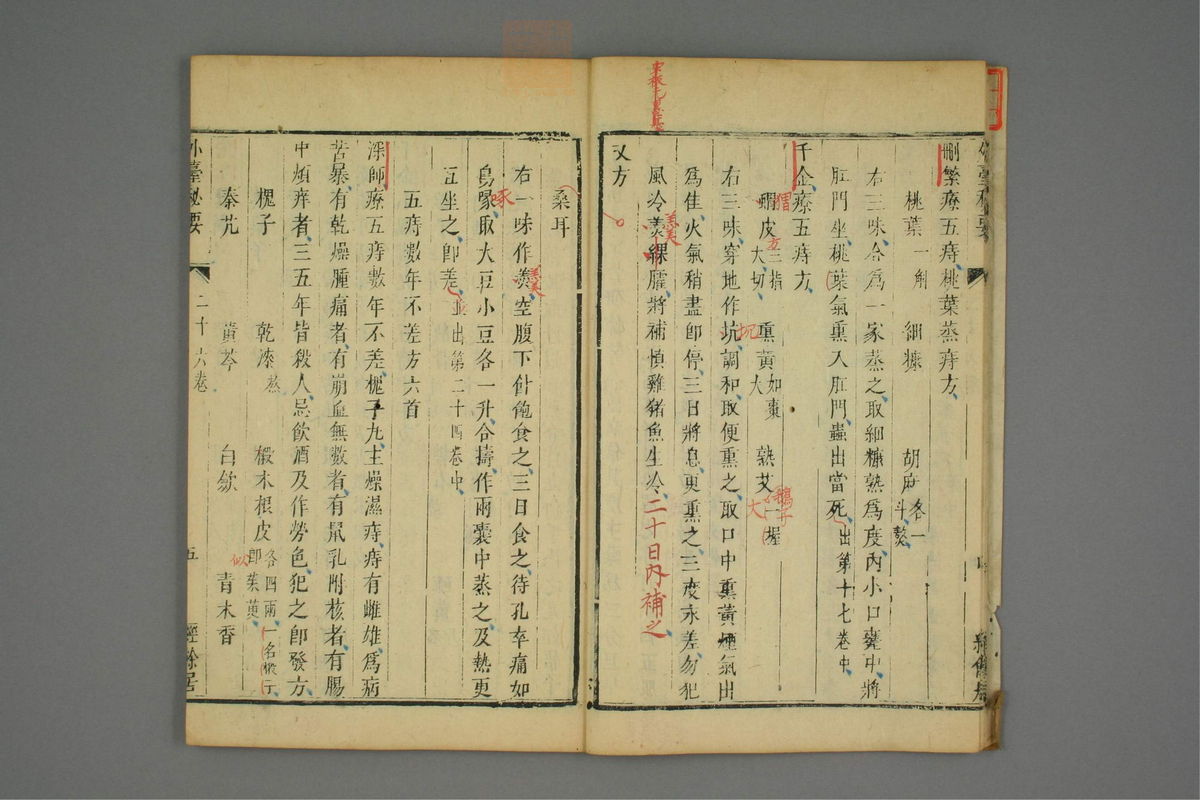 刪繁療五痔桃葉蒸痔方
桃葉一斛　細糠　胡麻各一斗熬
右三味合爲一家蒸之取細糠熟爲度內小口甕中將
肛門坐桃葉氣熏入肛門蟲出當死出第十七卷中
千金療五痔方
蝟皮方三指大切　熏黃如棗大　熟艾一握
右三味穿地作坑調和取便熏之取口中熏黃煙氣出
爲佳火氣稍盡卽停三日將息更熏之三度永差勿犯
風冷羹臛將補慎雞猪魚生冷二十日內補之
又方
桑耳
右一味作羹空腹下飽食之三日食之待孔卒痛如
鳥啄取大豆小豆各一升合擣作兩囊中蒸之及熱更
互坐之卽差並出第二十四卷中
五痔數年不差方六首
深師療五痔數年不差槐子丸主燥濕痔痔有雌雄爲病
苦暴有乾燥腫痛者有崩血無數者有鼠乳附核者有腸
中煩痒者三五年皆殺人忌飲酒及作勞色犯之卽發方
槐子　乾漆熬　椴木根皮各四兩一名樧子卽茱萸
秦艽　黃芩　白斂　青木香
外臺秘要　二十六卷　五　經餘居